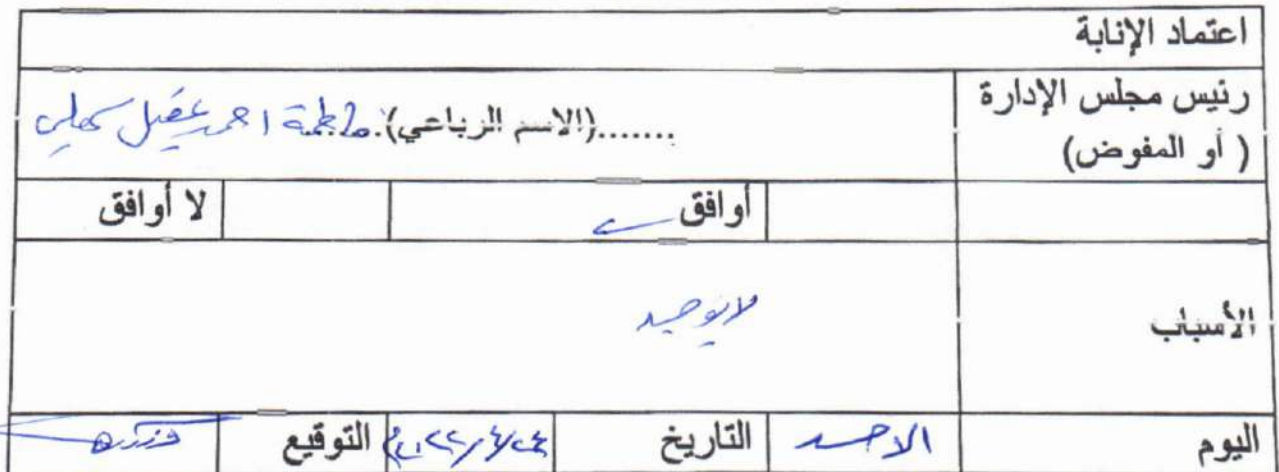 اعتماد الإنابة
رئيس مجلس الإدارة
( أو المفوض)
.......(الاسم الرباعي): فاطمة احمد عقيل سهلي
أوافق
لا أوافق
الأسباب
لا يوجد
اليوم الاحد التاريخ ٢٠٢٢/٤/٢٤ التوقيع